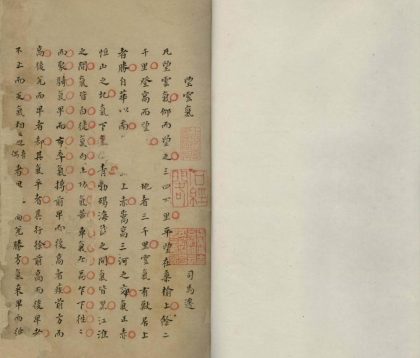 望雲氣
司馬遷
凡望雲氣仰而望之三四百里平望在桑榆上餘二
千里登高而望 地者三千里雲氣有獸居上
者勝自華以南 上赤嵩高三河之 氣正赤
恒山之北氣下黑青勃碣海岱之間氣皆黑江淮
之間氣皆白徒氣白土功氣黃車氣乍高乍下往往
而聚騎氣卑而布卒氣摶前卑而後高者疾前方而
高後兌而卑者卻其氣平者其行徐前高而後卑
不止而反氣相遇者 兌勝方氣來卑而循